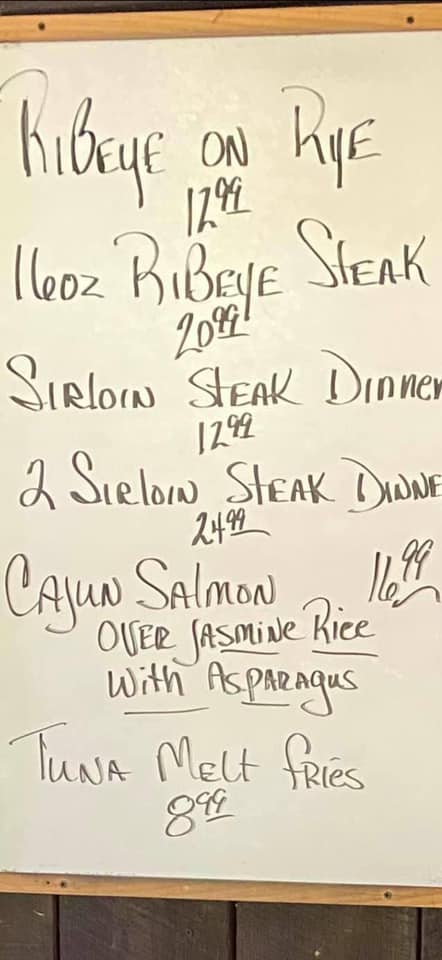 RiBEYE ON RYE
12.99
16oz RiBEYE STEAK
20.99
SIRLOIN STEAK Dinner
12.99
2 SIRLOIN STEAK DINNE
24.99
CAJUN SALMON 16.99
OVER JASMINE Rice
With ASPARAGUS
TUNA MELt fRiES
8.99